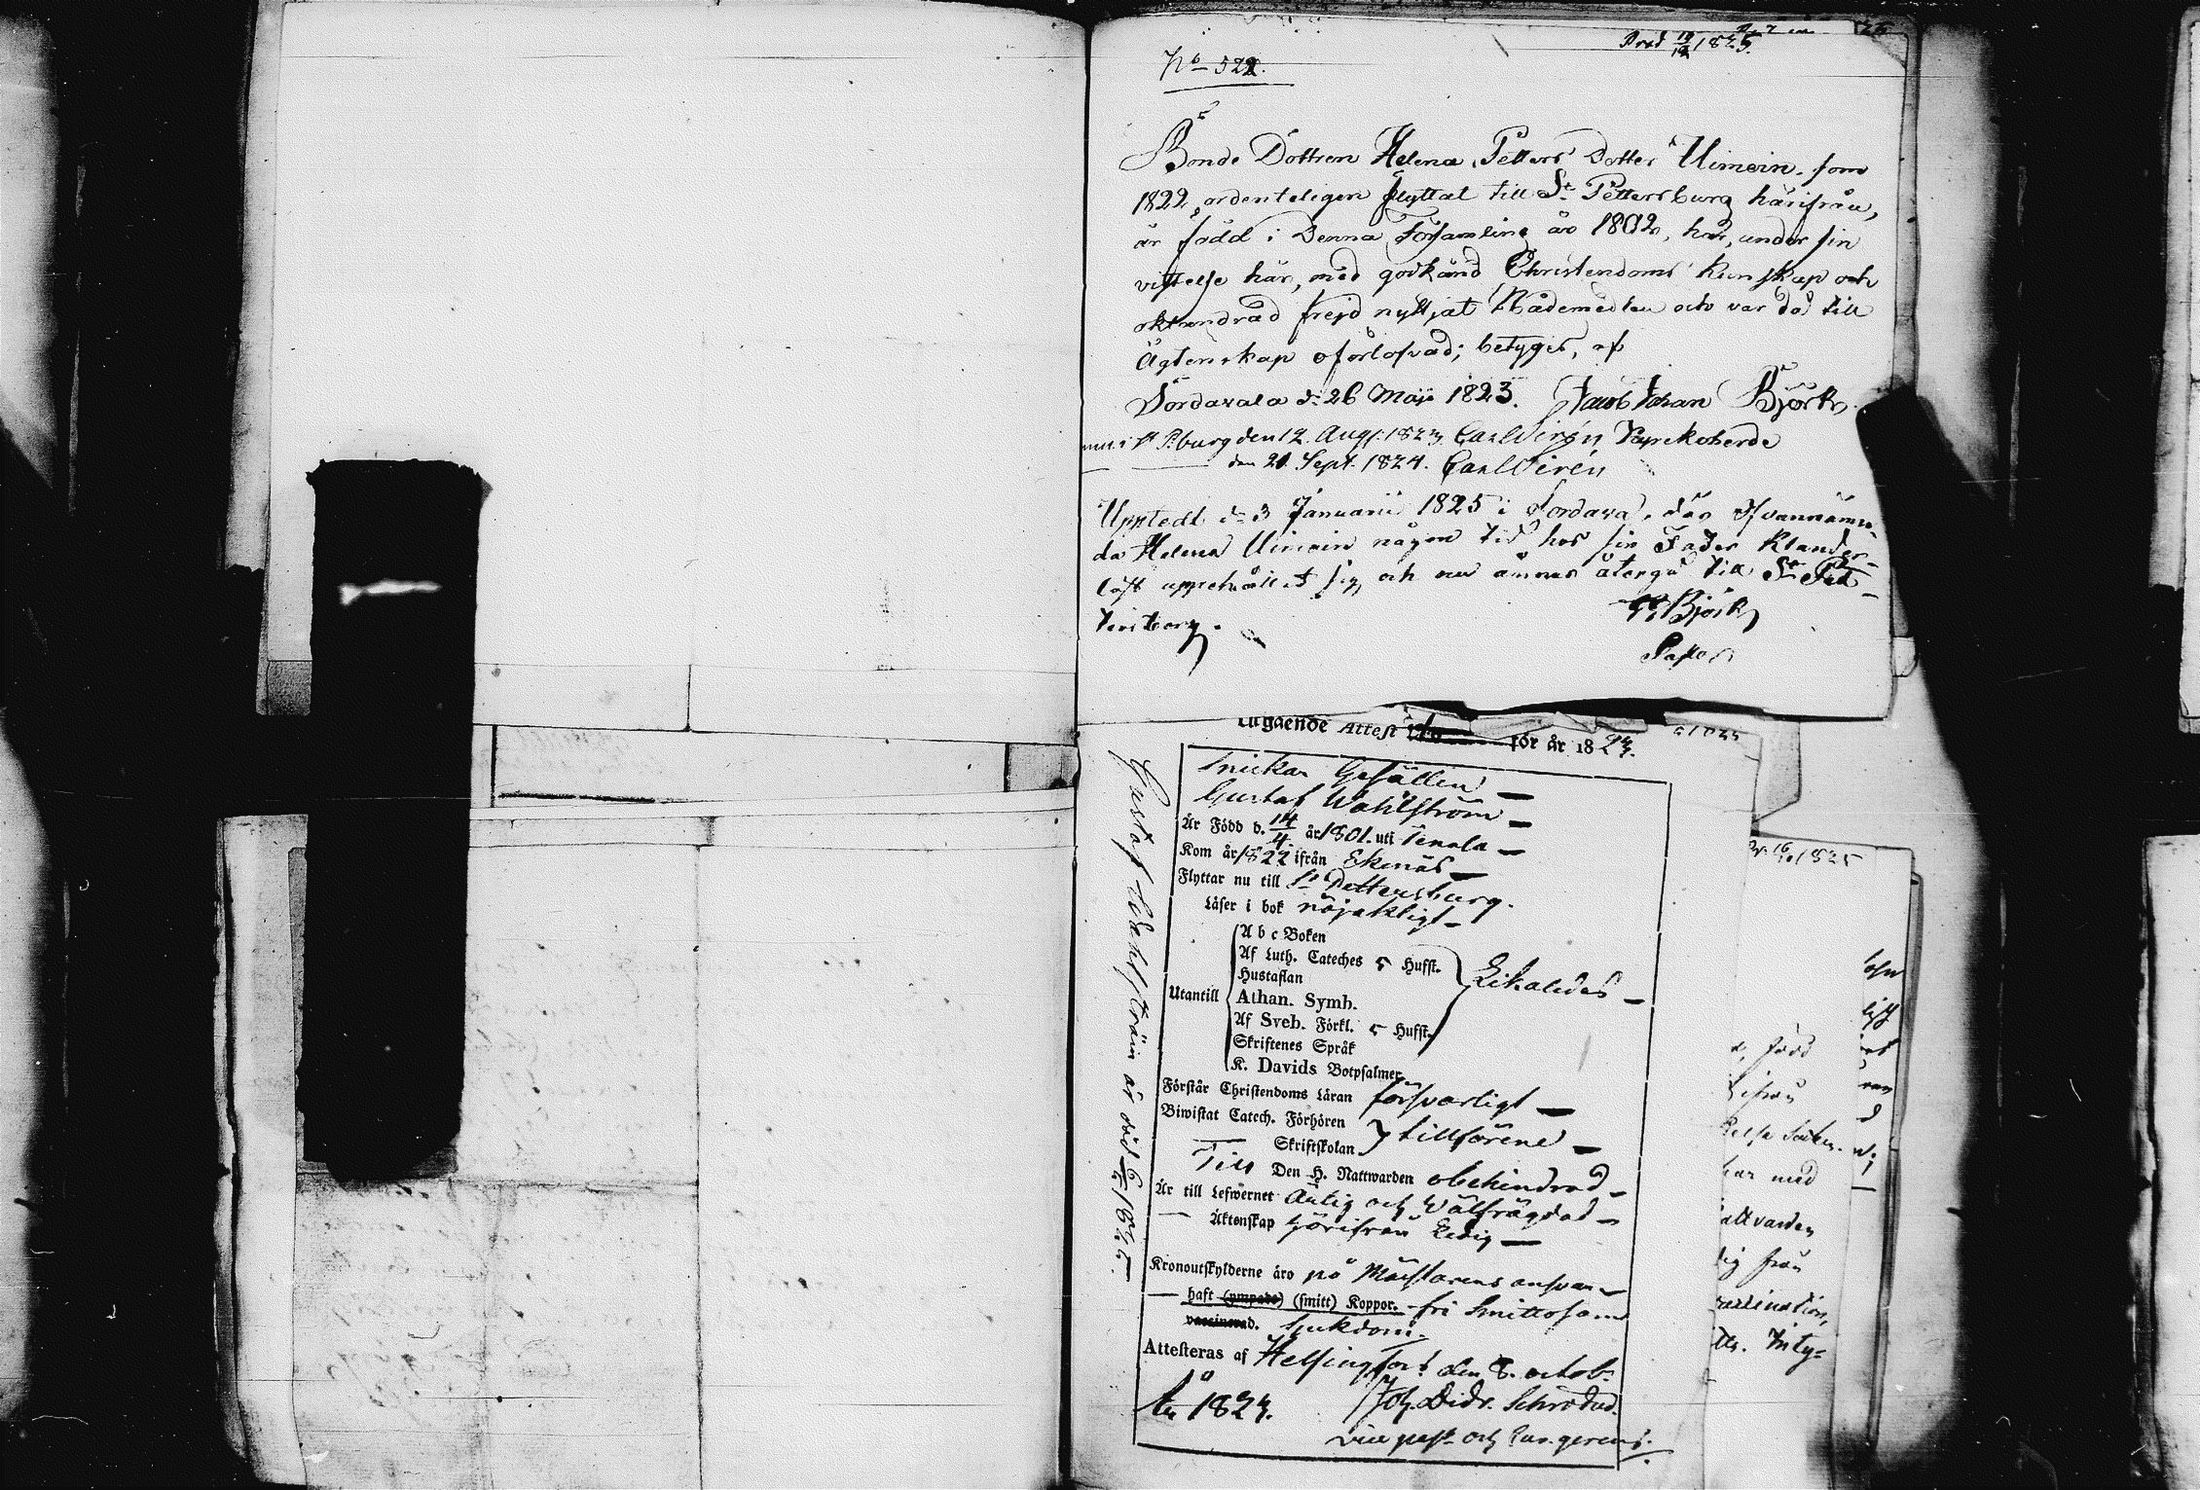 Prod 19/12 1825.
No 522.
Bonde Dottren Helena Petters Dotter Uimoin, som
1822, ordenteligen flyttat till St Pettersburg härifrån,
är född i Denna Församling år 1802, har, under sin
vistelse här, med godkänd Christendoms kunskap och
oklandrad frejd nyttjat Nådemedlen och var då till
Ägtenskap oförlofvad; betyges, af
Sordavala d: 26 Maji 1823. Jacob Johan Björk
St P.burg den 12. Aug. 1823 Carl Wirén Kyrkoherde
den 21. Sept. 1824. Carl Wirén
Upptedt d: 3 Januarii 1825 i Sordava, där ofvannämn
da Helena Uimoin någon tid hos sin Fader klander-
löst uppehållit sig, och nu ämnar återgå till St Pet-
tersborg.
Björk
Pastor
Utgående Attest för år 1823.
Snickar Gesällen
Gustaf Wahlström
Är Född d. 14/4 år 1801. uti Tenala
Kom år 1822 ifrån Ekenäs
Flyttar nu till St Pettersburg.
Läser i bok nöjaktligt
A b c Boken
Af Luth. Cateches 5 Hufst.
Hustaflan
Utantill Athan. Symb. Likaledes
Af Sveb. Förkl. 5 Hufst.
Skriftenes Språk
K. Davids Botpsalmer
Förstår Christendoms Läran försvarligt
Biwistat Catech. Förhören
Skriftskolan } tillförene
Till Den H. Nattwarden obehindrad
Är till Lefwernet ärlig och Wälfrägdad
Äktenskap härifrån Ledig
Kronoutskylderne äro på Mästarens ansvar
haft (ympade) (smitt) Koppor. fri smittosam
vaccinerad. Sjukdom.
Attesteras af Helsingfors den 8. octob.
år 1823. Joh. Didr. Schröder.
vice past. och
Gustaf Wahlström är död 1825.
1825
född
ifrån
har med
attvarden
dig från